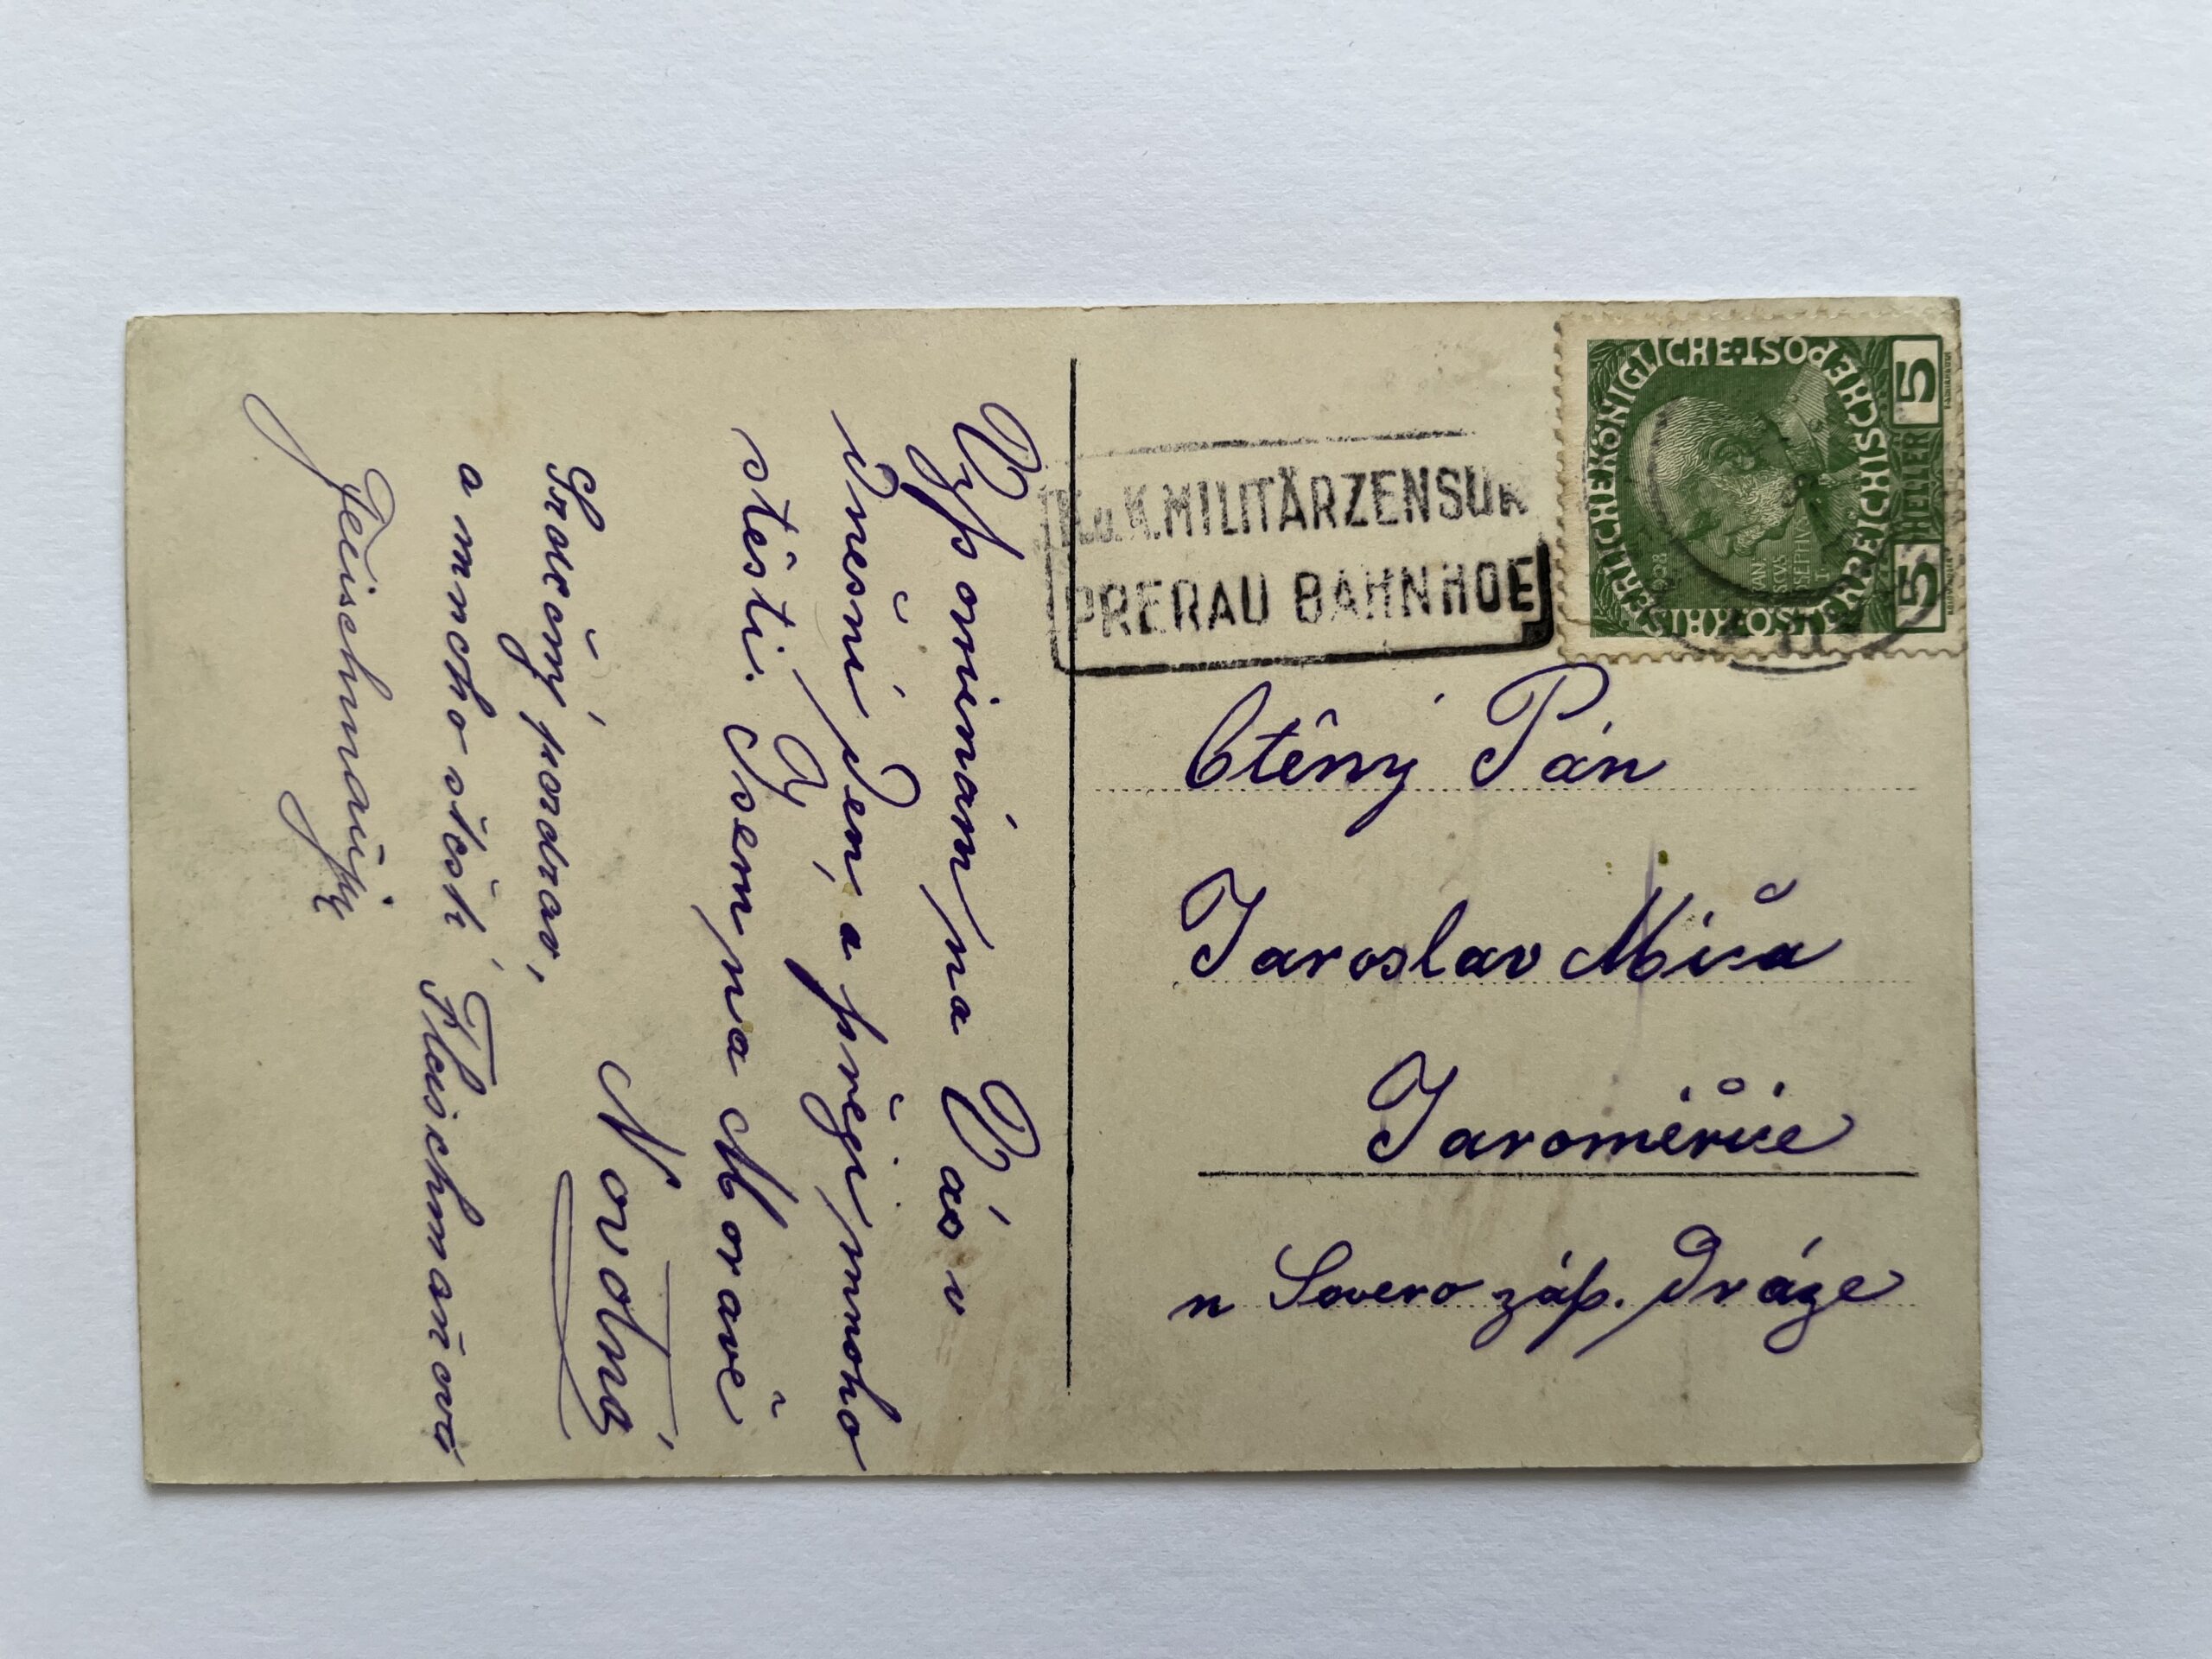 Vzpomínám na Vás v
dnešní den, a přeji mnoho
štěstí. Jsem na Moravě
Novotná
Srdečný pozdrav,
a mnoho štěstí Fleischmanová
K.u.K. MILITÄRZENSUR
PRERAU BAHNHOF
KAISERLICHE KÖNIGLICHE ÖSTERREICHISCHE POST
5 HELLER 5
1908
FRANCISCVS IOSEPHVS I
Ctěný Pán
Jaroslav Míča
Jaroměřice
n Severo záp. Dráze